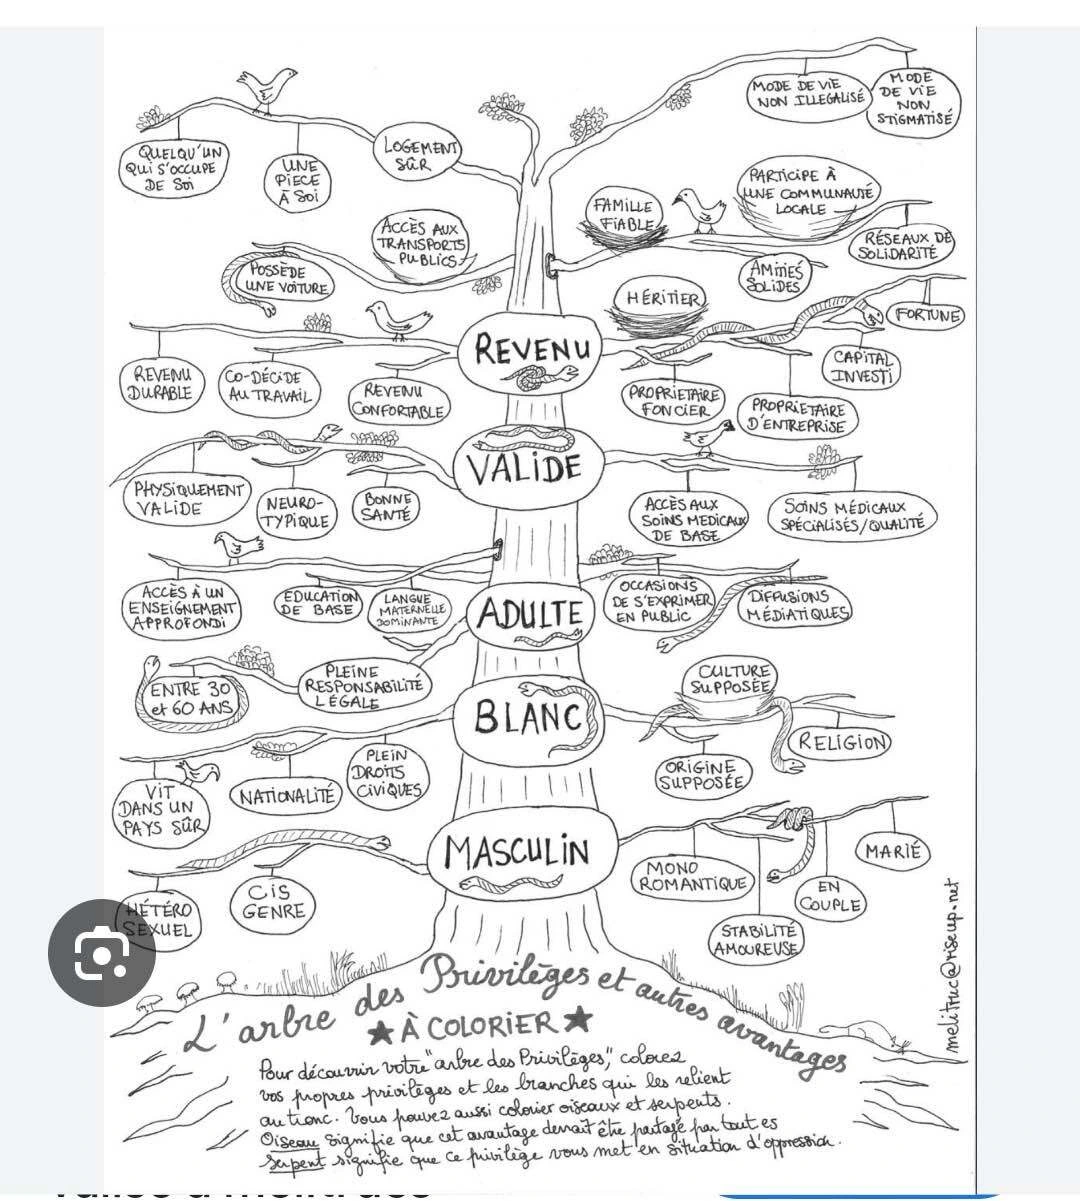 MODE DE VIE
NON ILLEGALISÉ
MODE
DE VIE
NON
STIGMATISÉ
QUELQU'UN
QUI S'OCCUPE
DE SOI
UNE
PIECE
À SOI
LOGEMENT
SÛR
FAMILLE
FIABLE
PARTICIPE À
UNE COMMUNAUTÉ
LOCALE
RÉSEAUX DE
SOLIDARITÉ
AMITIÉS
SOLIDES
ACCÈS AUX
TRANSPORTS
PUBLICS
POSSÈDE
UNE VOITURE
HÉRITIER
FORTUNE
REVENU
CAPITAL
INVESTI
REVENU
DURABLE
CO-DÉCIDE
AU TRAVAIL
REVENU
CONFORTABLE
PROPRIETAIRE
FONCIER
PROPRIETAIRE
D'ENTREPRISE
VALIDE
PHYSIQUEMENT
VALIDE
NEURO-
TYPIQUE
BONNE
SANTÉ
ACCÈS AUX
SOINS MEDICAUX
DE BASE
SOINS MÉDICAUX
SPÉCIALISÉS/QUALITÉ
ADULTE
ACCÈS À UN
ENSEIGNEMENT
APPROFONDI
EDUCATION
DE BASE
LANGUE
MATERNELLE
DOMINANTE
OCCASIONS
DE S'EXPRIMER
EN PUBLIC
DIFFUSIONS
MÉDIATIQUES
ENTRE 30
et 60 ANS
PLEINE
RESPONSABILITÉ
LÉGALE
BLANC
CULTURE
SUPPOSÉE
RELIGION
ORIGINE
SUPPOSÉE
VIT
DANS UN
PAYS SÛR
NATIONALITÉ
PLEIN
DROITS
CIVIQUES
MASCULIN
HÉTÉRO
SEXUEL
CIS
GENRE
MONO
ROMANTIQUE
STABILITÉ
AMOUREUSE
EN
COUPLE
MARIÉ
melitruc@riseup.net
L'arbre des Privilèges et autres avantages
★ À COLORIER ★
Pour découvrir votre "arbre des Privilèges," colorez
vos propres privilèges et les branches qui les relient
au tronc. Vous pouvez aussi colorier oiseaux et serpents.
Oiseau signifie que cet avantage devrait être partagé par tout es
Serpent signifie que ce privilège vous met en situation d'oppression.